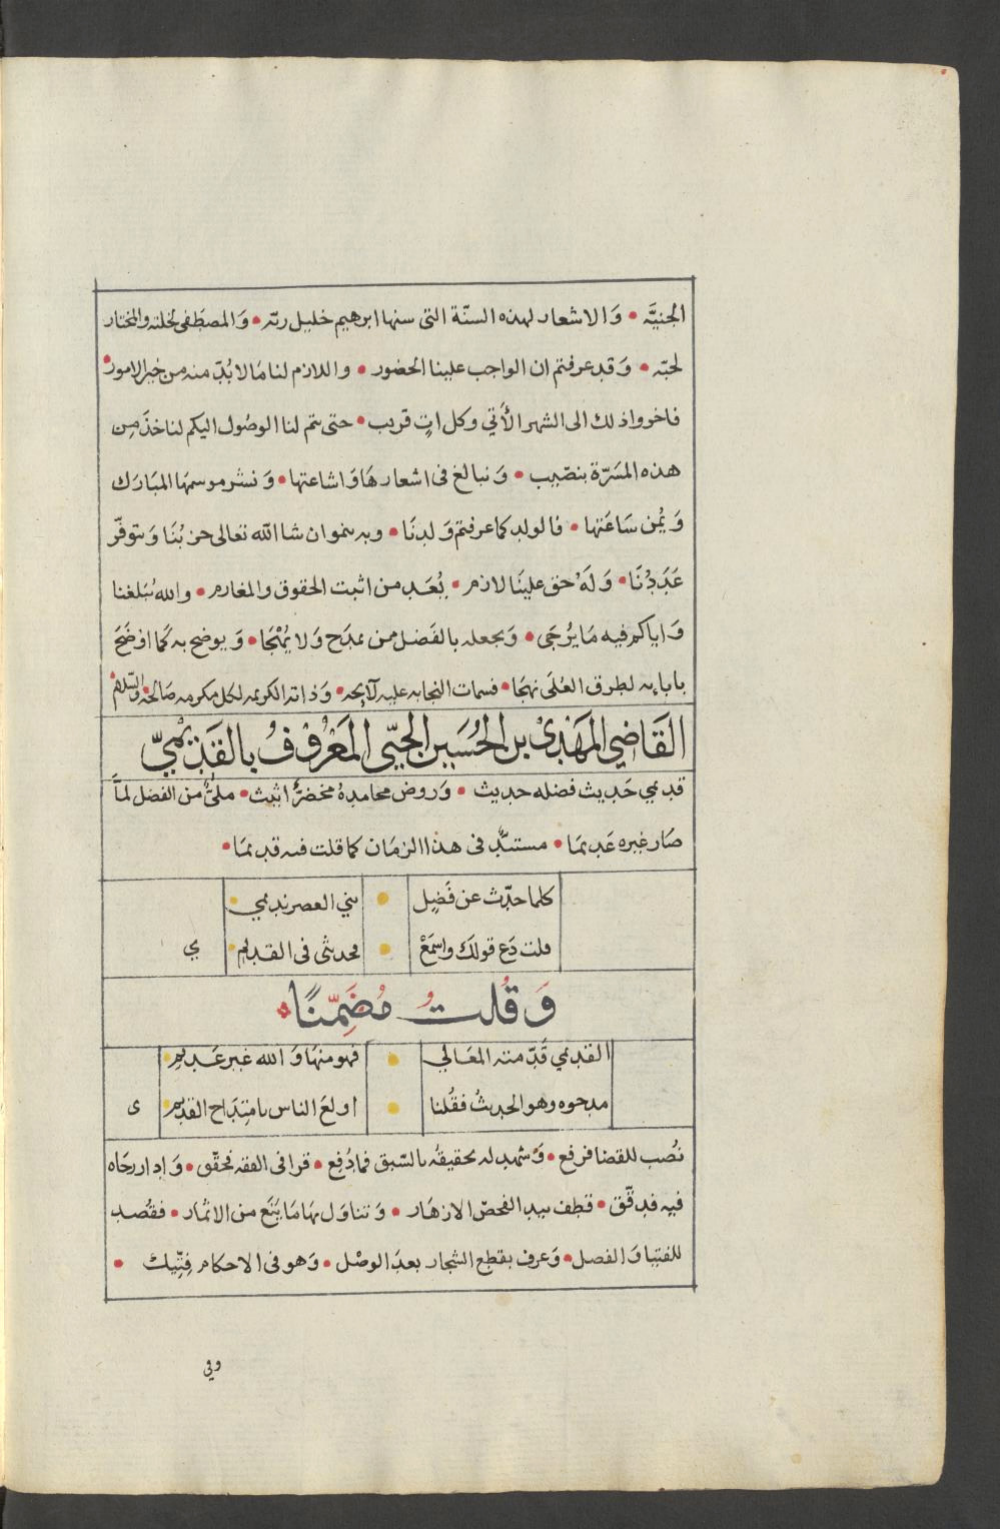 الجنيَّه • وَالاشعار لهذه السنّة التى سنها ابرهيم خليل ربّه • وَالمصطَفى لخلته والمختار
لحبّه • وَقد عرفتم ان الواجب علينا الحضور • واللازم لنا مَا لا بُدّ منه من خبر الامور •
فاخروا ذلك الى الشهر الأتي وكل اتٍ قريب • حتى يتم لنا الوصُول اليكم لناخذ من
هذه المسَرّة بنصَيب • وَنبالغ فى اشعارهَا وَاشاعتها • وَننشر موسمها المبَارك
وَيُمن سَاعَتها • فالولد كما عرفتم وَلدنَا • وبه ينمو ان شا الله تعالى حزبُنَا وَيتوفّر
عَدَدُنَا • وَلَهُ حق علينَا لازم • بُعَد من اثبت الحقوق والمغارم • والله يُبَلغنا
وَاياكم فيه مَا يُرْجَى • وَيجعله بالفَضل ممن يمدَح وَلا يُهْجَا • وَيوضح به كَما اوضَحَ
بابايه لطرق العُلَى نهجَا • فسمات النجابه عليه لآيحه • وَذاته الكريمه لكل مكرمه صَالحة والسّلام
القَاضِي المَهْدِىْ بن الحُسَين الجِبّى المَعْرُوْفُ بالقَدِيْمِيّ
قديمي حَديث فضله حديث • وَروض محامدهُ مخضرٌّ اثيث • مليٌّ من الفضل لمَّا
صَار غيره عَديمَا • مستبِدٌّ فى هذا الزمَان كما قلت فيه قديمَا •
كلما حدّث عن فَضِل • بني العصر نديمي
قلت دَع قولَك واسمَعْ • محدثى فى القديم ي
وَقُلتُ مُضَمِّنًا
القديمي قَدّمته المعَالي • فهو منهَا وَالله غير عَديمِ
مدحوه وهو الحديثُ فقُلنا • اولعَ الناس بامتِدَاح القديم ى
نُصب للقضا فرفع • وَشهد له تحقيقُه بالسّبق فما دُفِع • قرا فى الفقه فحقّق • وَادار رحَاه
فيه فدقّق • قطف بيد الفحصّ الازهَار • وَتناوَل مهَامَا يَنَع من الاثمار • فقُصد
للفتيا وَالفصل • وَعرف بقطع الشجار بعدَ الوصْل • وَهو فى الاحكام فتِّيك •
وفي